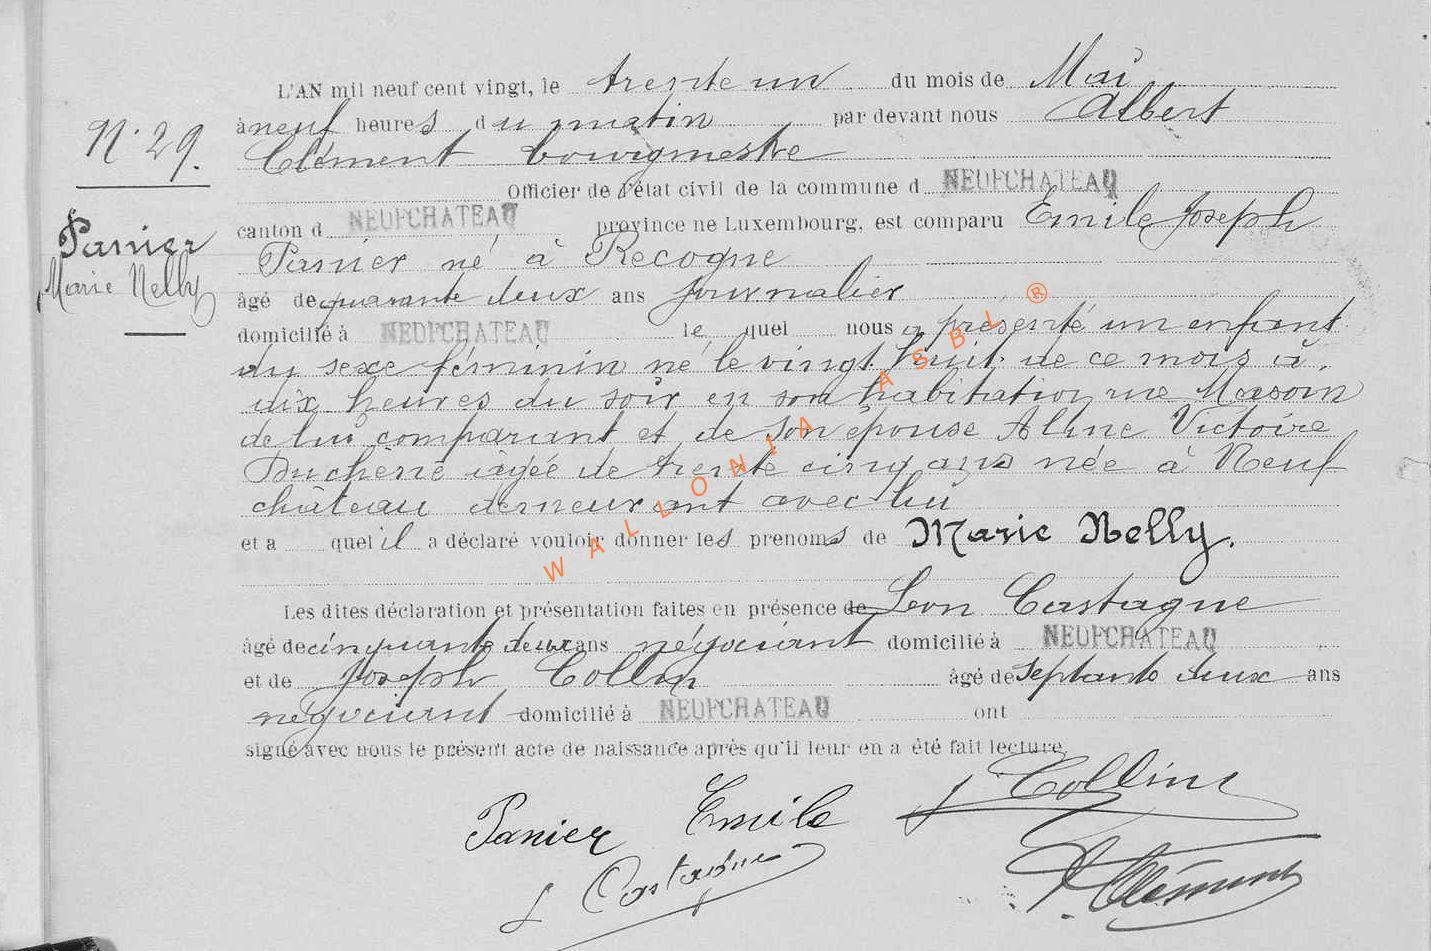 L'AN mil neuf cent vingt, le trente un du mois de Mai
à neuf heures du matin par devant nous Albert
N° 29.
Clément bourgmestre
Officier de l'état civil de la commune d NEUFCHATEAU
canton d NEUFCHATEAU province de Luxembourg, est comparu Emile Joseph
Panier
Panier né à Recogne
Marie Nelly
âgé de quarante deux ans journalier
domicilié à NEUFCHATEAU le quel nous a présenté un enfant
du sexe féminin né le vingt huit de ce mois à
dix heures du soir en son habitation rue
de lui comparant et de son épouse Aline Victoire
Duchêne âgée de trente cinq ans née à Neuf
château demeurant avec lui
et a quel il a déclaré vouloir donner les prenoms de Marie Nelly.
Les dites déclaration et présentation faites en présence de Léon Castagne
âgé de cinquante deux ans négociant domicilié à NEUFCHATEAU
et de Joseph Collin âgé de septante deux ans
négociant domicilié à NEUFCHATEAU ont
signé avec nous le présent acte de naissance après qu'il leur en a été fait lecture.
WALLONIA ASBL ®
Panier Emile J Collin
L Castagne A. Clément